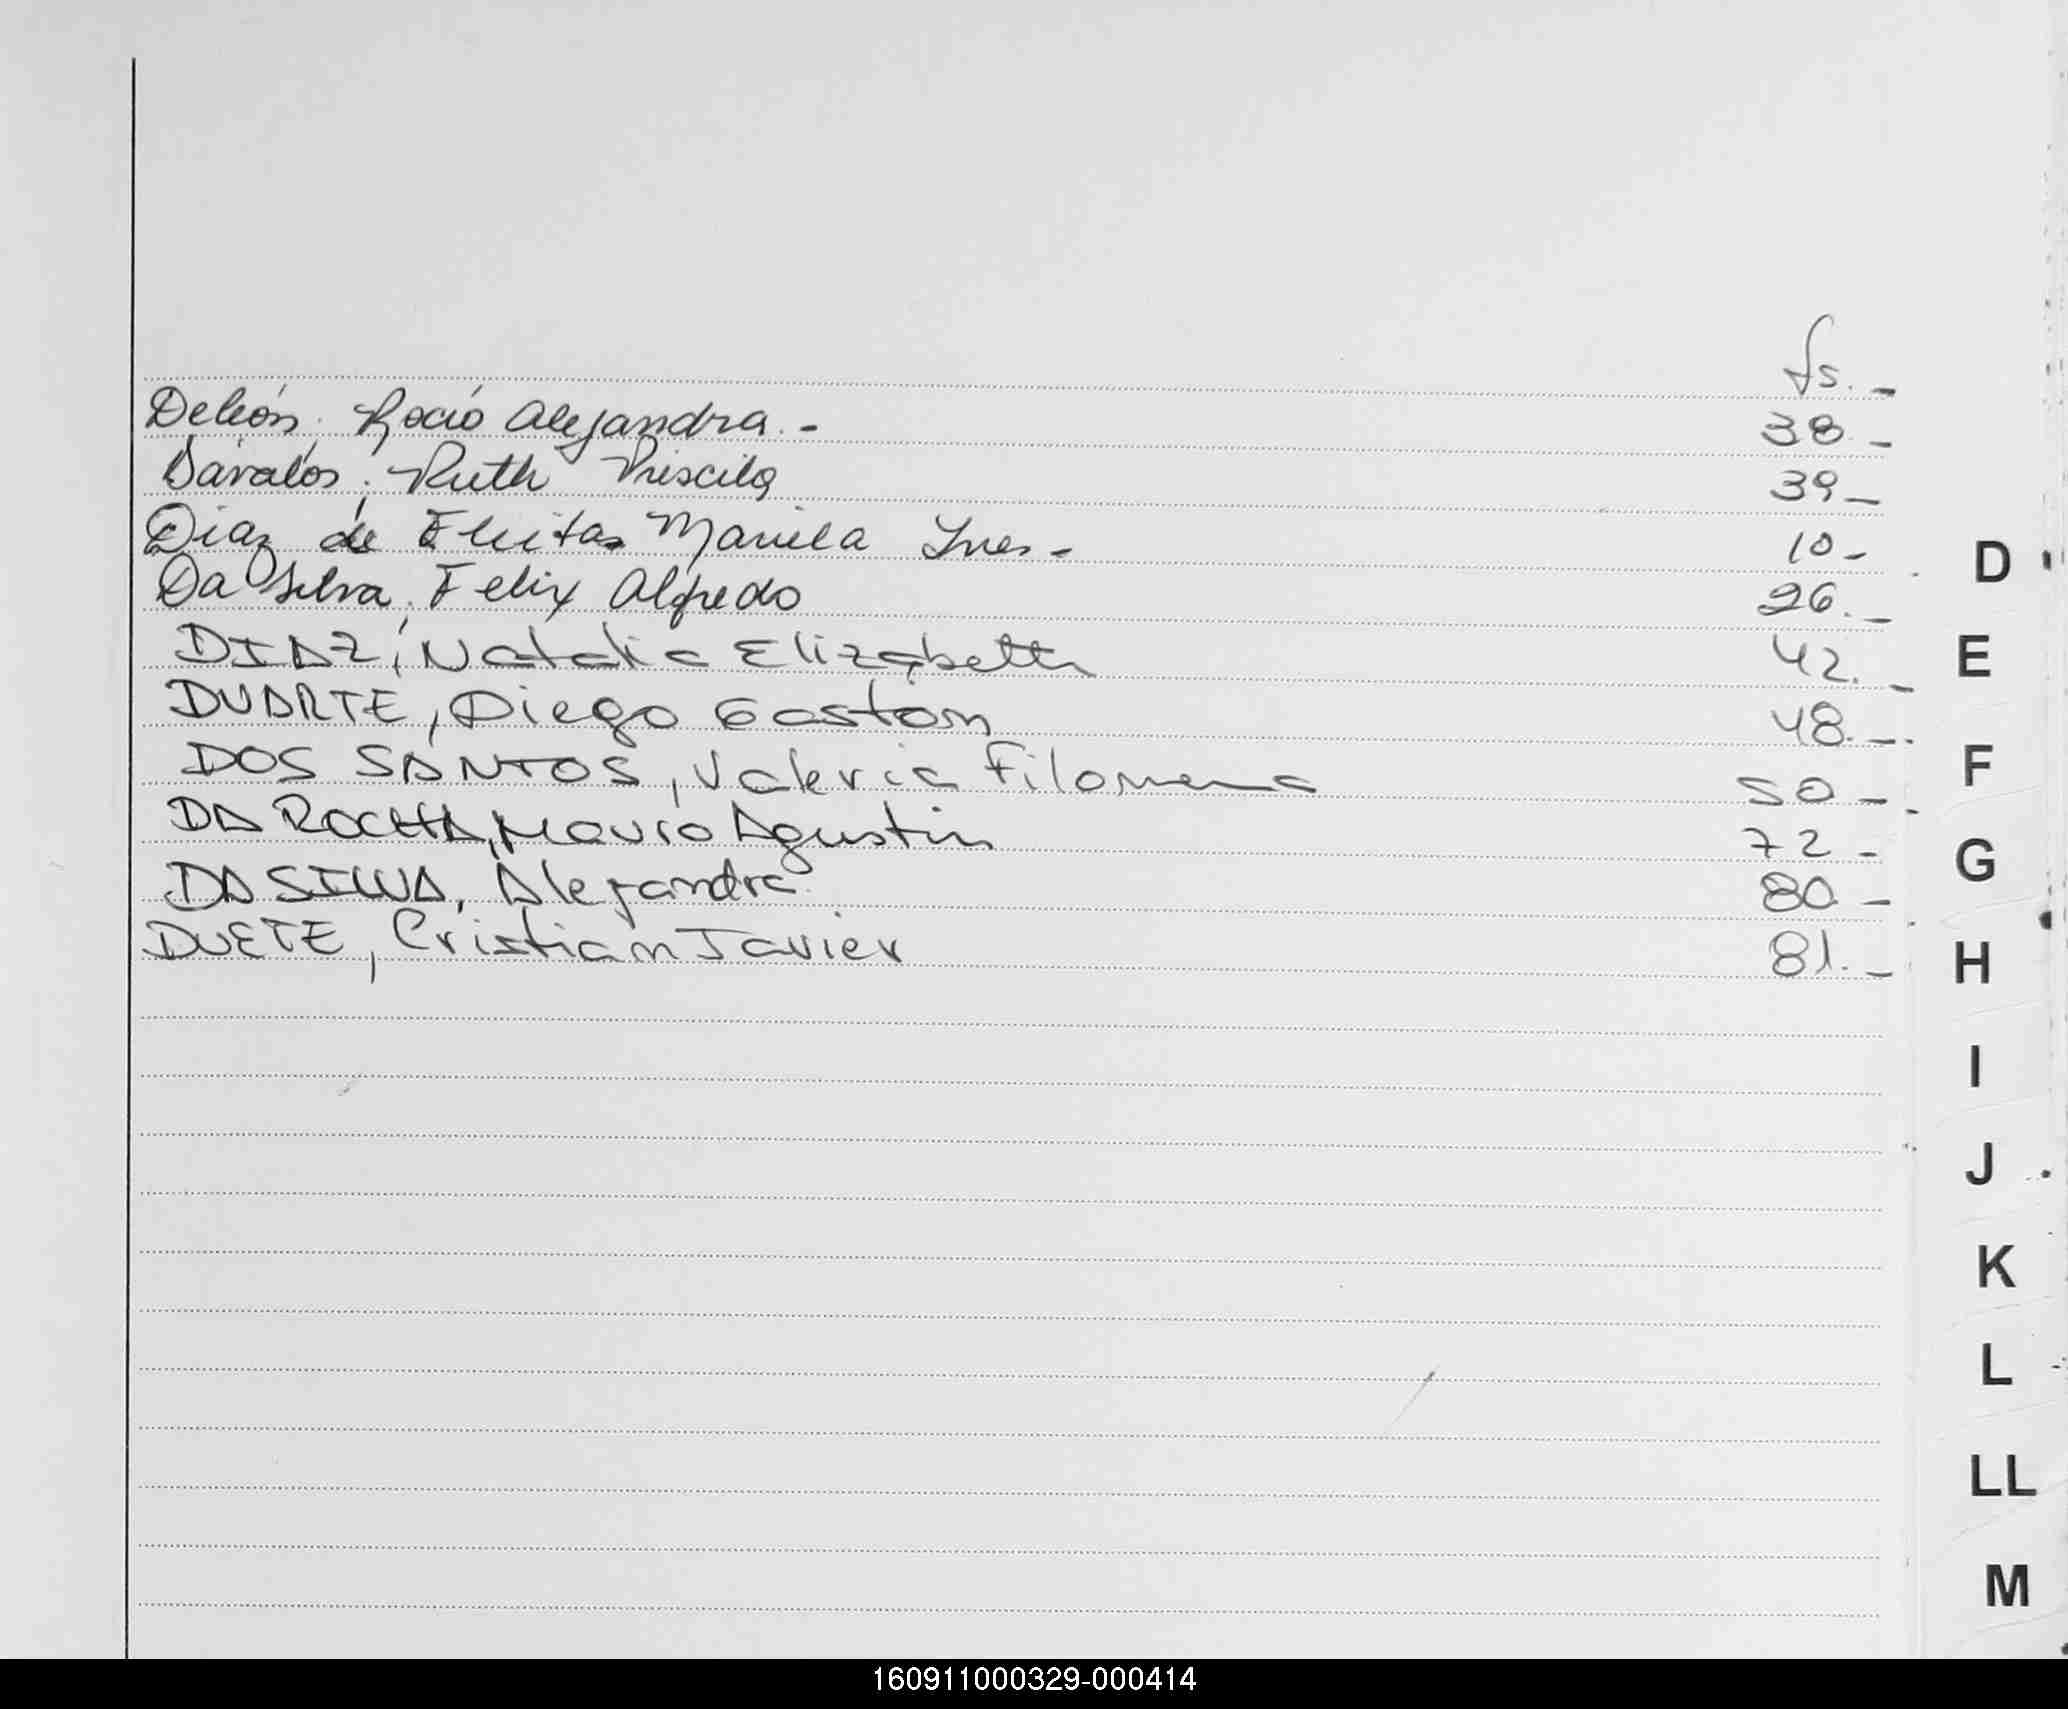 fs.-
Deleón. Rocío Alejandra.- 38.-
Dávalos, Ruth Priscila 39-
Diaz de Fleitas Mariela Ines.- 10-
Da Silva, Felix Alfredo 26.-
DIAZ, Natalia Elizabeth 42.-
DUARTE, Diego Gastón 48.-
DOS SANTOS, Valeria Filomena 50-
DA ROCHA, Mauro Agustin 72-
DA SILVA, Alejandra 80.-
DUETE, Cristian Javier 81.-
D
E
F
G
H
I
J
K
L
LL
M
160911000329-000414